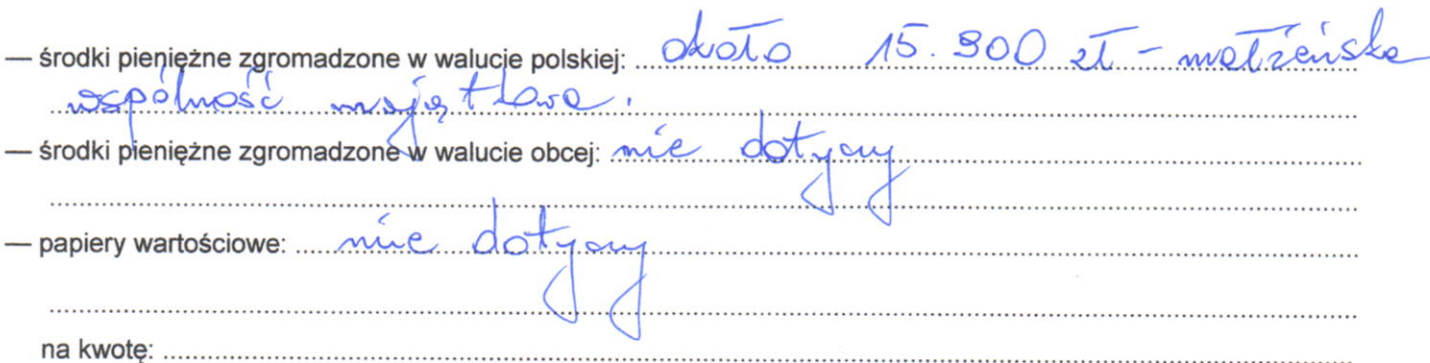 — środki pieniężne zgromadzone w walucie polskiej: około 15.900 zł - małżeńska
wspólność majątkowa.
— środki pieniężne zgromadzone w walucie obcej: nie dotyczy
— papiery wartościowe: nie dotyczy
na kwotę: